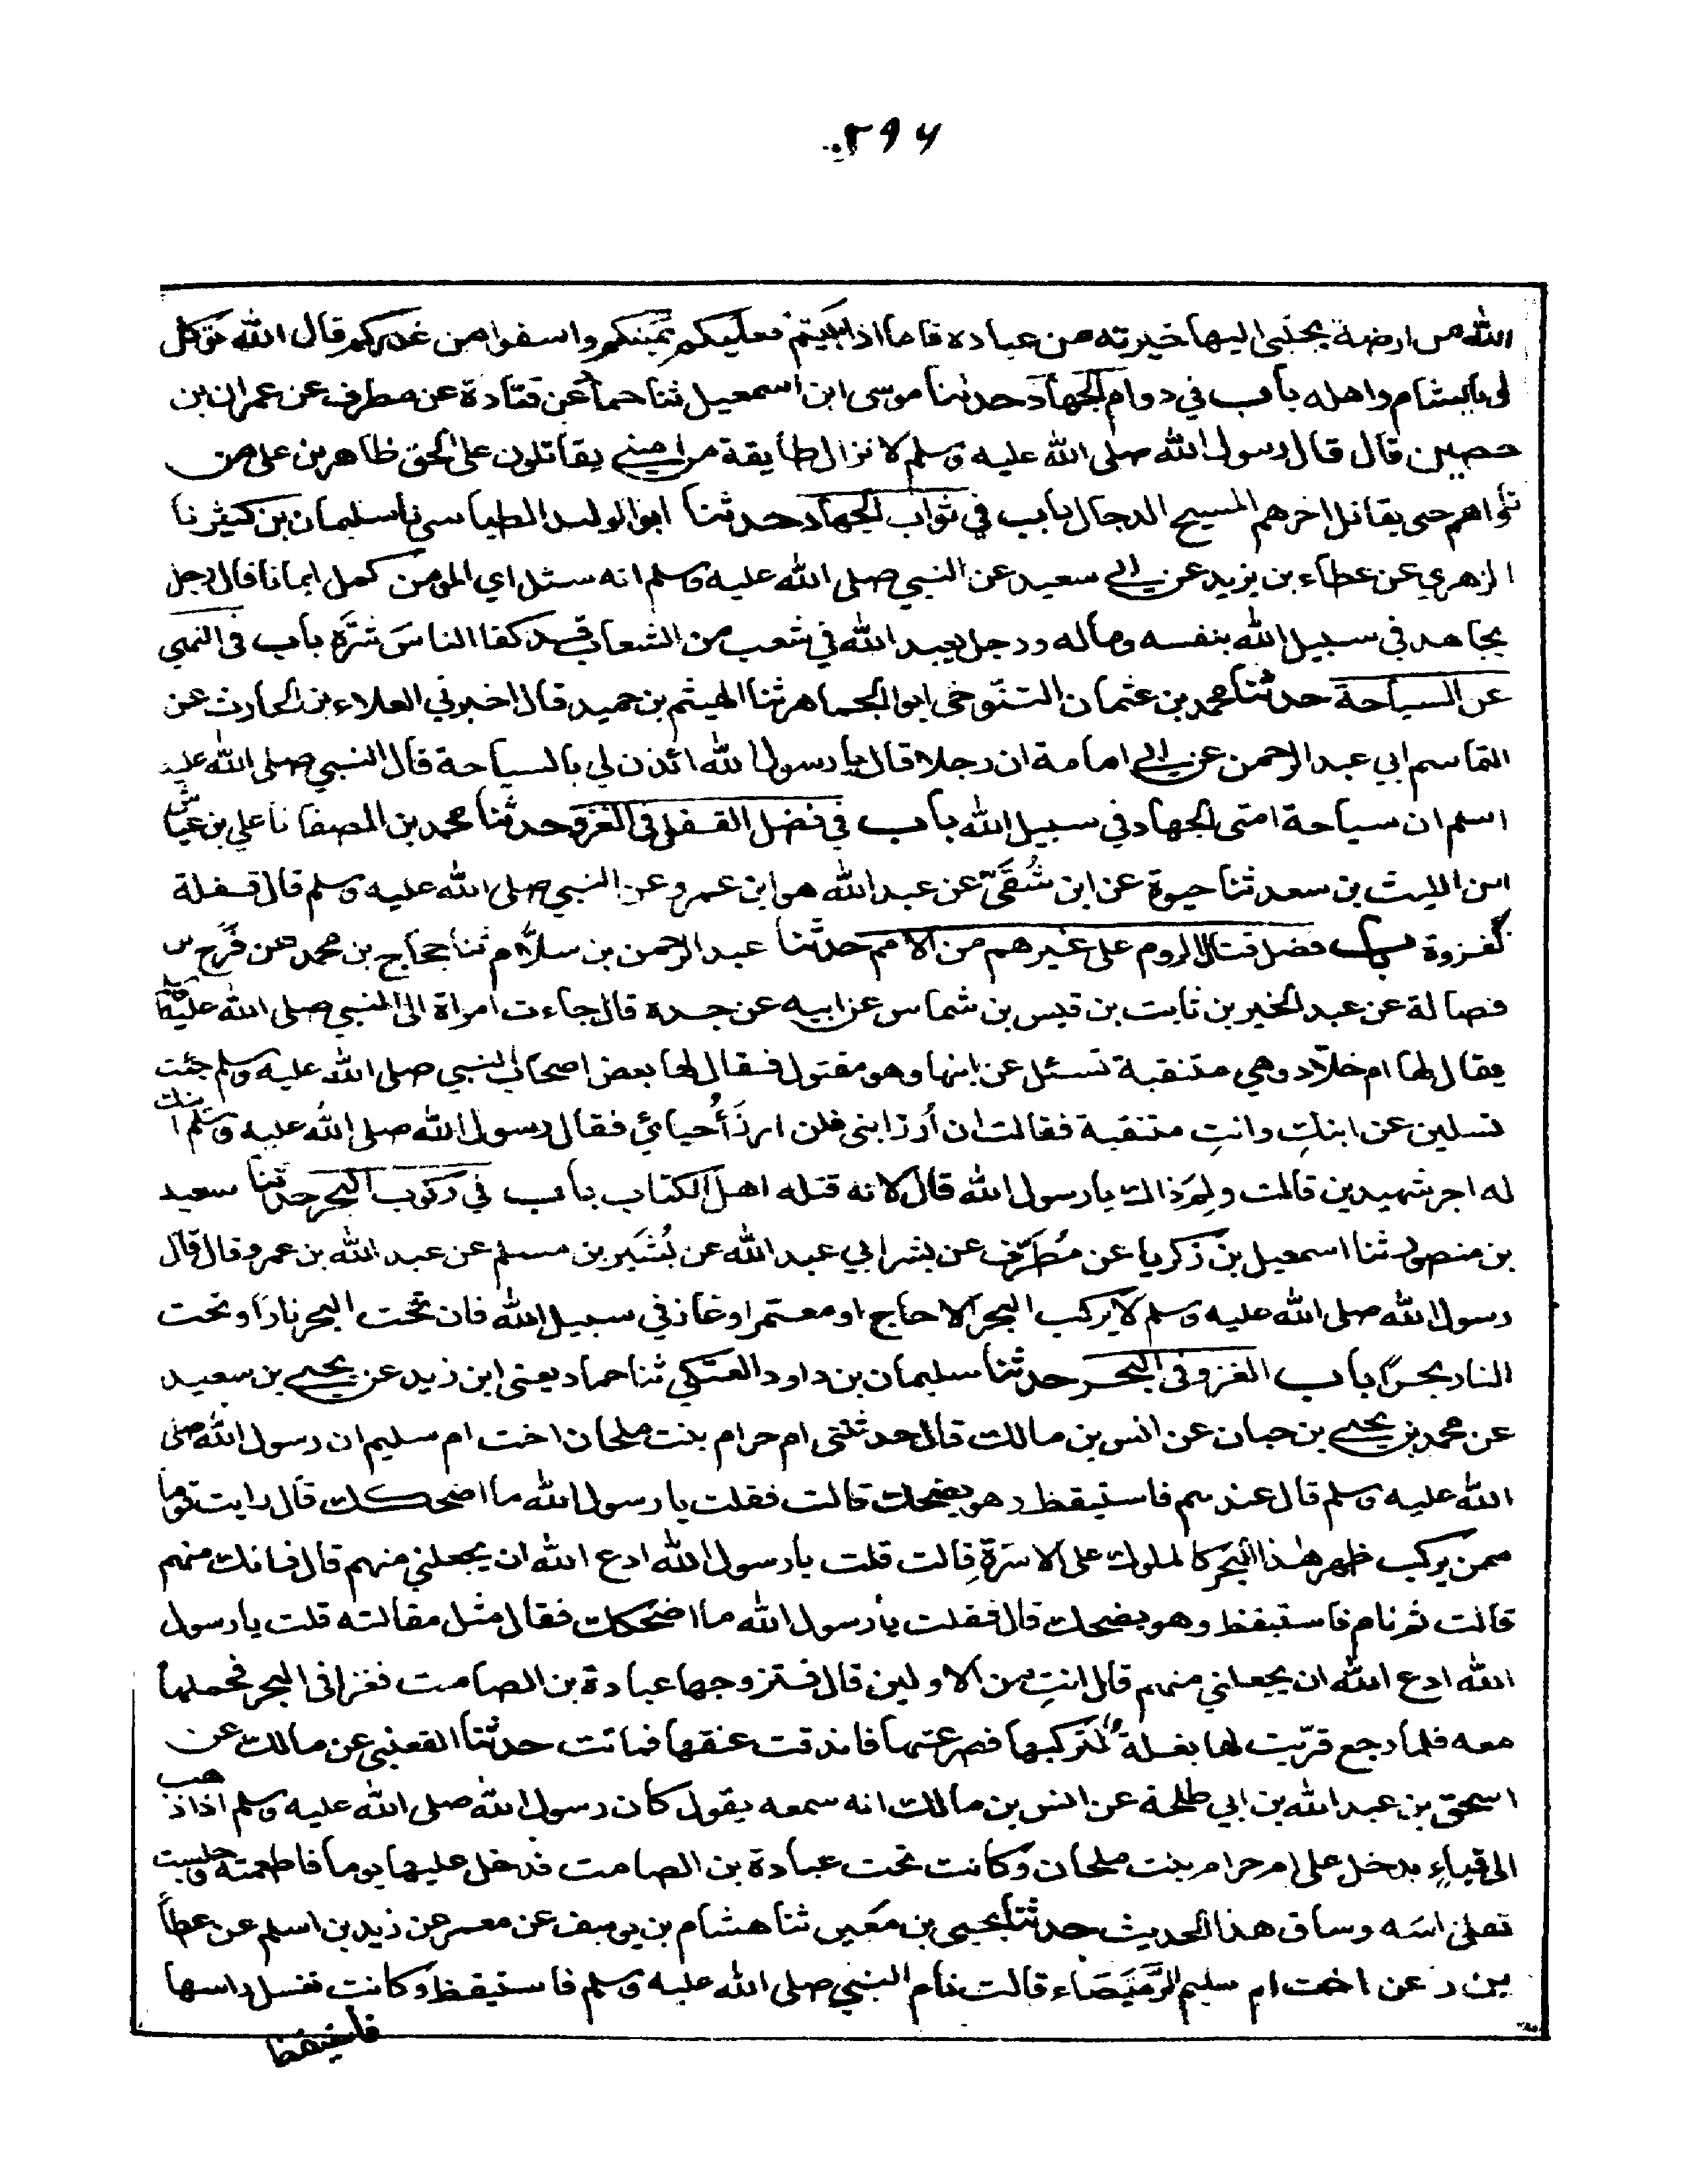 ٢٩٦
الله من ارضه يجتبى اليها خيرته من عباده فاما اذا ابيتم فعليكم بيمنكم واسقوا من غدركم فان الله توكل
لى بالشام واهله باب في دوام الجهاد حدثنا موسى ابن اسمعيل ثنا حماد عن قتادة عن مطرف عن عمران بن
حصين قال قال رسول الله صلى الله عليه وسلم لا تزال طايفة من امتي يقاتلون على الحق ظاهرين على من
ناواهم حتى يقاتل اخرهم المسيح الدجال باب في ثواب الجهاد حدثنا ابو الوليد الطيالسى نا سليمان بن كثير نا
الزهري عن عطاء بن يزيد عن ابي سعيد عن النبي صلى الله عليه وسلم انه سئل اي المومن كمل ايمانا قال رجل
يجاهد في سبيل الله بنفسه وماله ورجل يعبد الله في شعب من الشعاب قد كفا الناس شره باب فى النهي
عن السياحة حدثنا محمد بن عثمان التنوخى ابو الجماهر ثنا الهيثم بن حميد قال اخبرني العلاء بن الحارث عن
القاسم ابي عبد الرحمن عن ابي امامة ان رجلا قال يا رسول الله ائذن لي بالسياحة قال النبي صلى الله عليه
اسلم ان سياحة امتى الجهاد في سبيل الله باب في فضل القفل فى الغزو حدثنا محمد بن المصفا نا علي بن عياش
اين الليث بن سعد ثنا حيوة عن ابن شُفَىّ عن عبد الله هو ابن عمرو عن النبي صلى الله عليه وسلم قال قفلة
كغزوة باب فضل قتال الروم على غيرهم من الامم حدثنا عبد الرحمن بن سلام ثنا حجاج بن محمد عن فرج بن
فضالة عن عبد الخير بن ثابت بن قيس بن شماس عن ابيه عن جده قال جاءت امراة الى النبي صلى الله عليه وسلم
يقال لها ام خلاد وهي متنقبة تسئل عن ابنها وهو مقتول فقال لها بعض اصحاب النبي صلى الله عليه وسلم جئت
تسلين عن ابنكِ وانتِ متنقبة فقالت ان اُرزا ابنى فلن ارزأ حيائي فقال رسول الله صلى الله عليه وسلم ابنك
له اجر شهيدين قالت ولِمَ ذاك يا رسول الله قال لانه قتله اهل الكتاب باب في ركوب البحر حدثنا سعيد
بن منصور ثنا اسمعيل بن زكريا عن مُطَرِّف عن بشر ابي عبد الله عن بُشَير بن مسلم عن عبد الله بن عمرو قال قال
رسول الله صلى الله عليه وسلم لا يركب البحر الا حاج او معتمر او غاز في سبيل الله فان تحت البحر نارًا وتحت
النار بحرًا باب الغزو فى البحر حدثنا سليمان بن داود العتكي ثنا حماد يعنى ابن زيد عن يحيى بن سعيد
عن محمد بن يحيى بن حبان عن انس بن مالك قال حدثتنى ام حرام بنت ملحان اخت ام سليم ان رسول الله صلى
الله عليه وسلم قال عندهم فاستيقظ وهو يضحك قالت فقلت يا رسول الله ما اضحكك قال رايت قوما
ممن يركب ظهر هذا البحر كالملوك على الاسرة قالت قلت يا رسول الله ادع الله ان يجعلني منهم قال فانك منهم
قالت ثم نام فاستيقظ وهو يضحك قال فقلت يا رسول الله ما اضحكك فقال مثل مقالته قلت يا رسول
الله ادع الله ان يجعلني منهم قال انتِ من الاولين قال فتزوجها عبادة بن الصامت فغزا فى البحر فحملها
معه فلما رجع قرّبت لها بغلة لتركبها فصرعتها فاندقت عنقها فماتت حدثنا القعنبي عن مالك عن
اسحق بن عبد الله بن ابي طلحة عن انس بن مالك انه سمعه يقول كان رسول الله صلى الله عليه وسلم اذا ذهب
الى قباء يدخل على ام حرام بنت ملحان وكانت تحت عبادة بن الصامت فدخل عليها يوما فاطعمته وجلست
تفلى راسه وساق هذا الحديث حدثنا يحيى بن معين ثنا هشام بن يوسف عن معمر عن زيد بن اسلم عن عطا
بن عن اخت ام سليم الرُّمَيصَاء قالت نام النبي صلى الله عليه وسلم فاستيقظ وكانت تغسل راسها
فاستيقظ